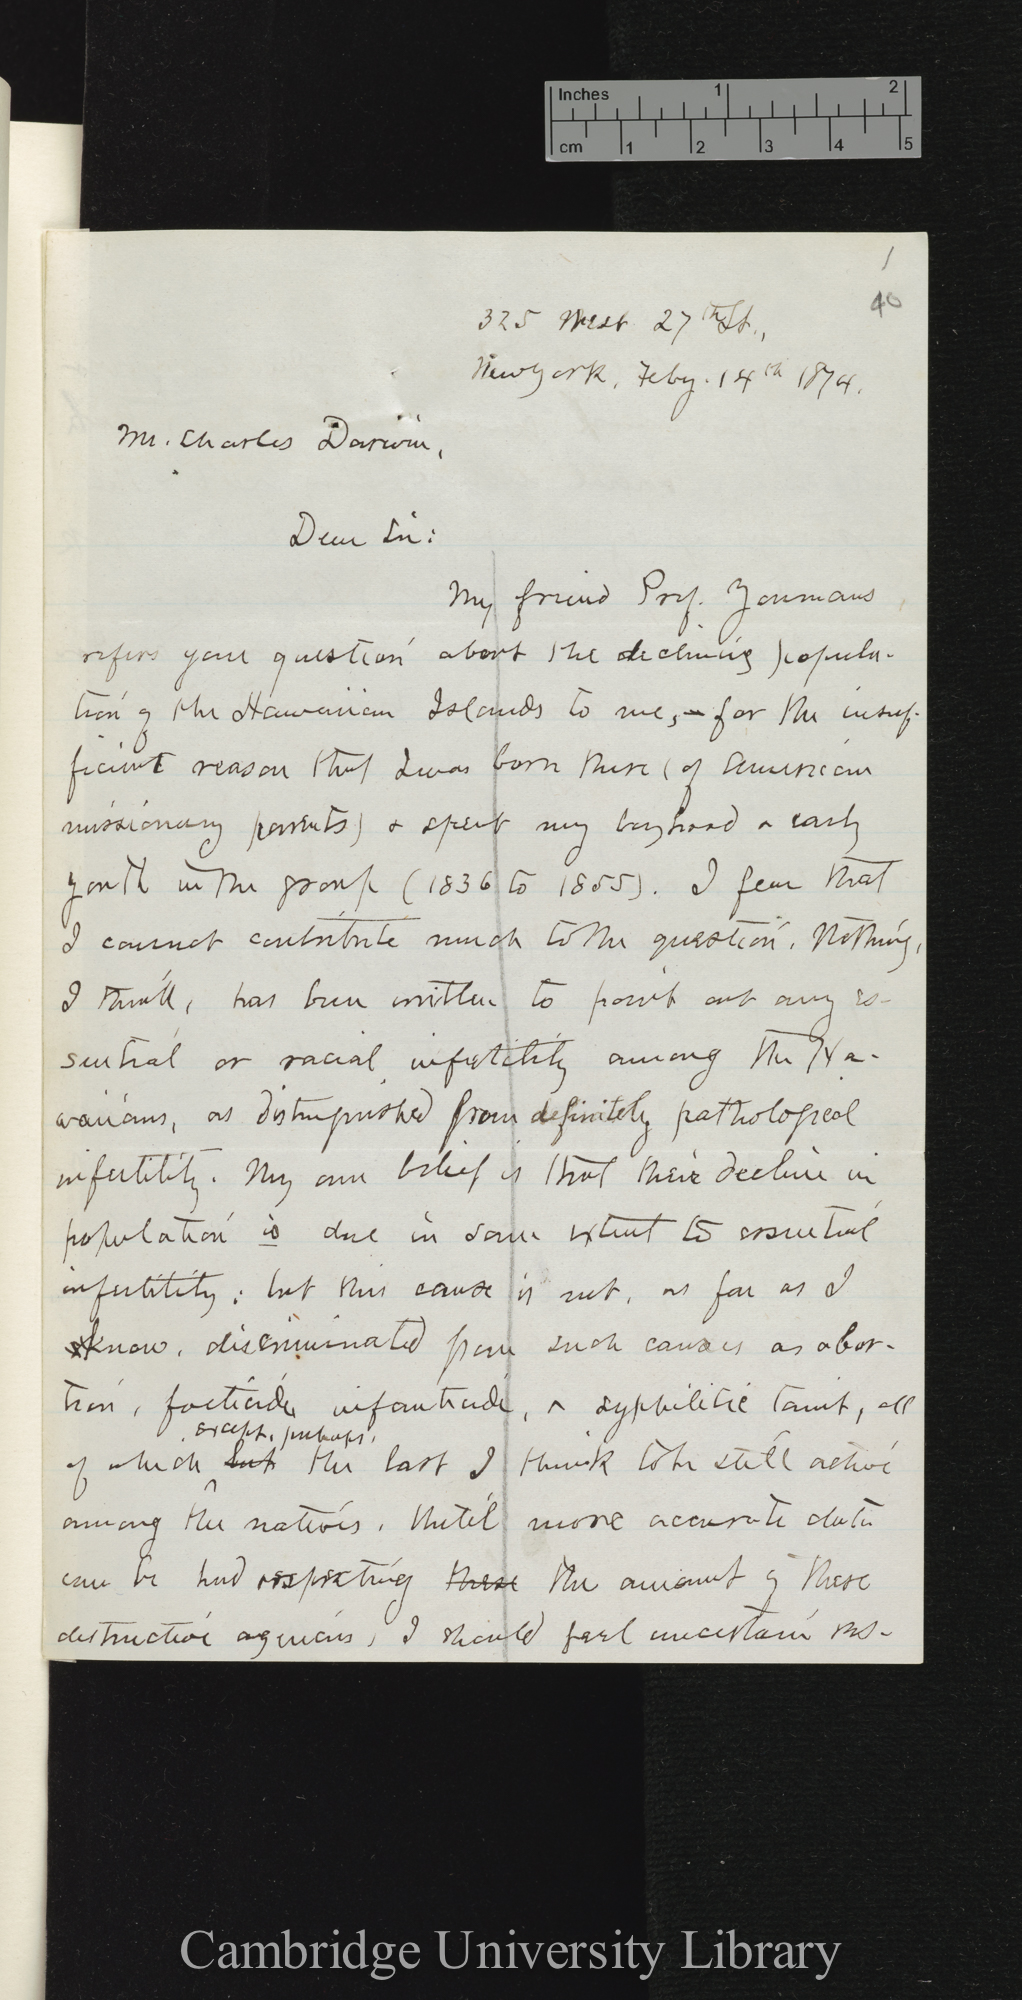 Inches 1 2
cm 1 2 3 4 5
1
40
325 West 27th St.,
New York, Feby. 14th 1874.
Mr. Charles Darwin,
Dear Sir:
My friend Prof. Youmans
refers your question about the declining popula-
tion of the Hawaiian Islands to me, – for the insuf-
ficient reason that I was born there (of American
missionary parents) & spent my boyhood & early
youth in the group (1836 to 1855). I fear that
I cannot contribute much to the question. Nothing,
I think, has been written to point out any es-
sential or racial infertility among the Ha-
waiians, as distinguished from definitely pathological
infertility. My own belief is that their decline in
population is due in some extent to essential
infertility; but this cause is not, as far as I
know, discriminated from such causes as abor-
tion, foeticide, infanticide, & syphilitic taint, all
except, perhaps,
of which but the last I think to be still active
among the natives. Until more accurate data
can be had respecting these the amount of these
destructive agencies, I should feel uncertain res-
Cambridge University Library